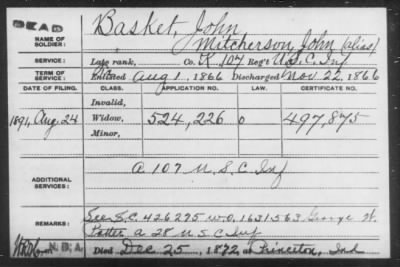 DEAD
NAME OF SOLDIER:
Basket, John
Mitcherson, John (alias)
SERVICE:
Late rank, Co. K, 107 Reg't U.S.C. Inf
TERM OF SERVICE:
Enlisted Aug 1, 1866 Discharged Nov. 22, 1866
DATE OF FILING. CLASS. APPLICATION NO. LAW. CERTIFICATE NO.
Invalid,
1891, Aug. 24 Widow, 524,226 0 497,875
Minor,
A 107 U.S.C Inf
ADDITIONAL SERVICES:
REMARKS:
See S.C. 426275 W.O. 1631563 George W.
Potter A 28 U S C Inf
N.D.A. Died Dec 25, 1872 at Princeton, Ind